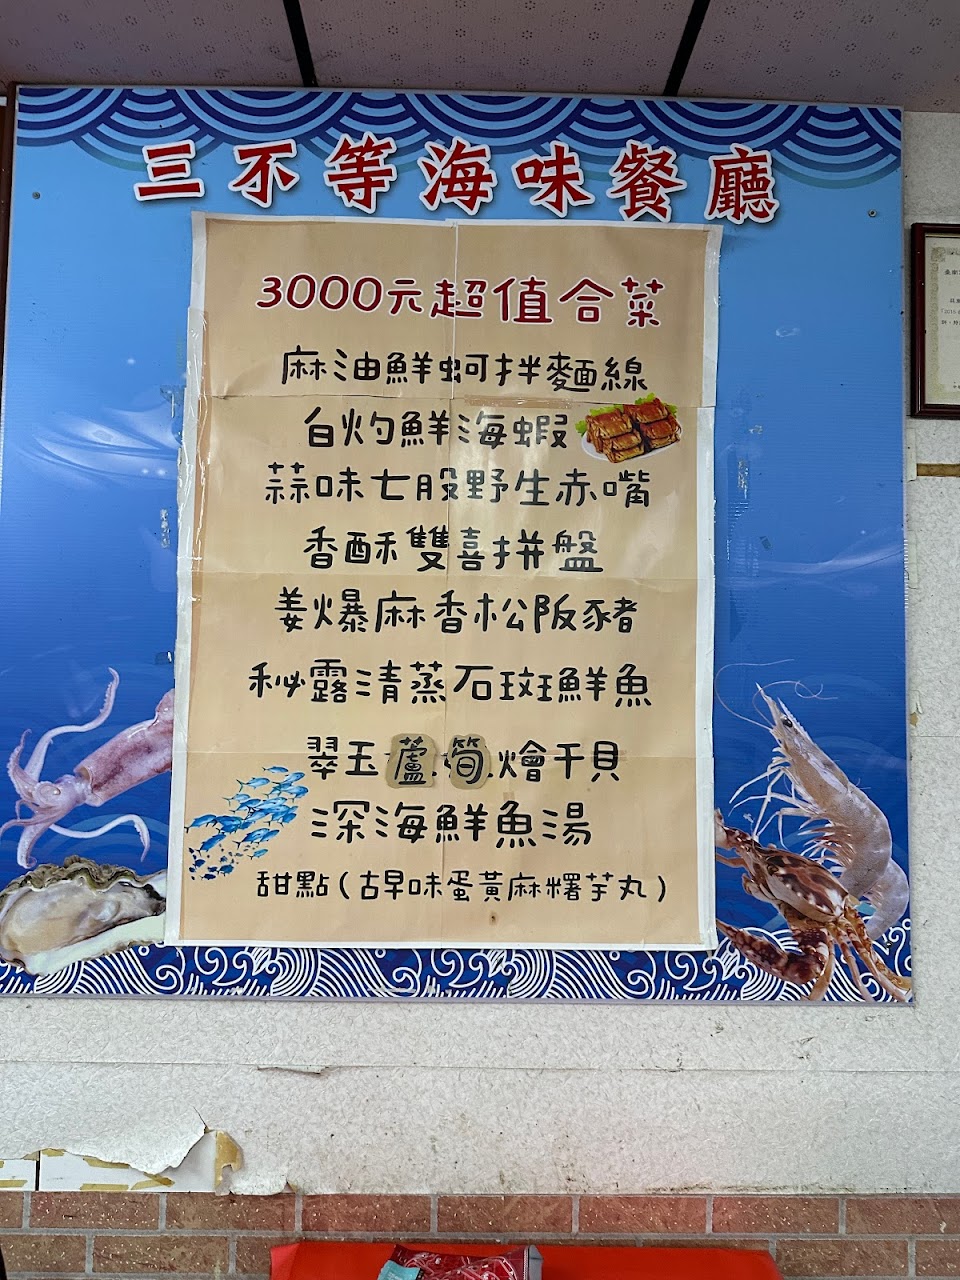 三不等海味餐廳
3000元超值合菜
麻油鮮蚵拌麵線
白灼鮮海蝦
蒜味七股野生赤嘴
香酥雙喜拼盤
姜爆麻香松阪豬
秘露清蒸石斑鮮魚
翠玉蘆筍燴干貝
深海鮮魚湯
甜點(古早味蛋黃麻糬芋丸)